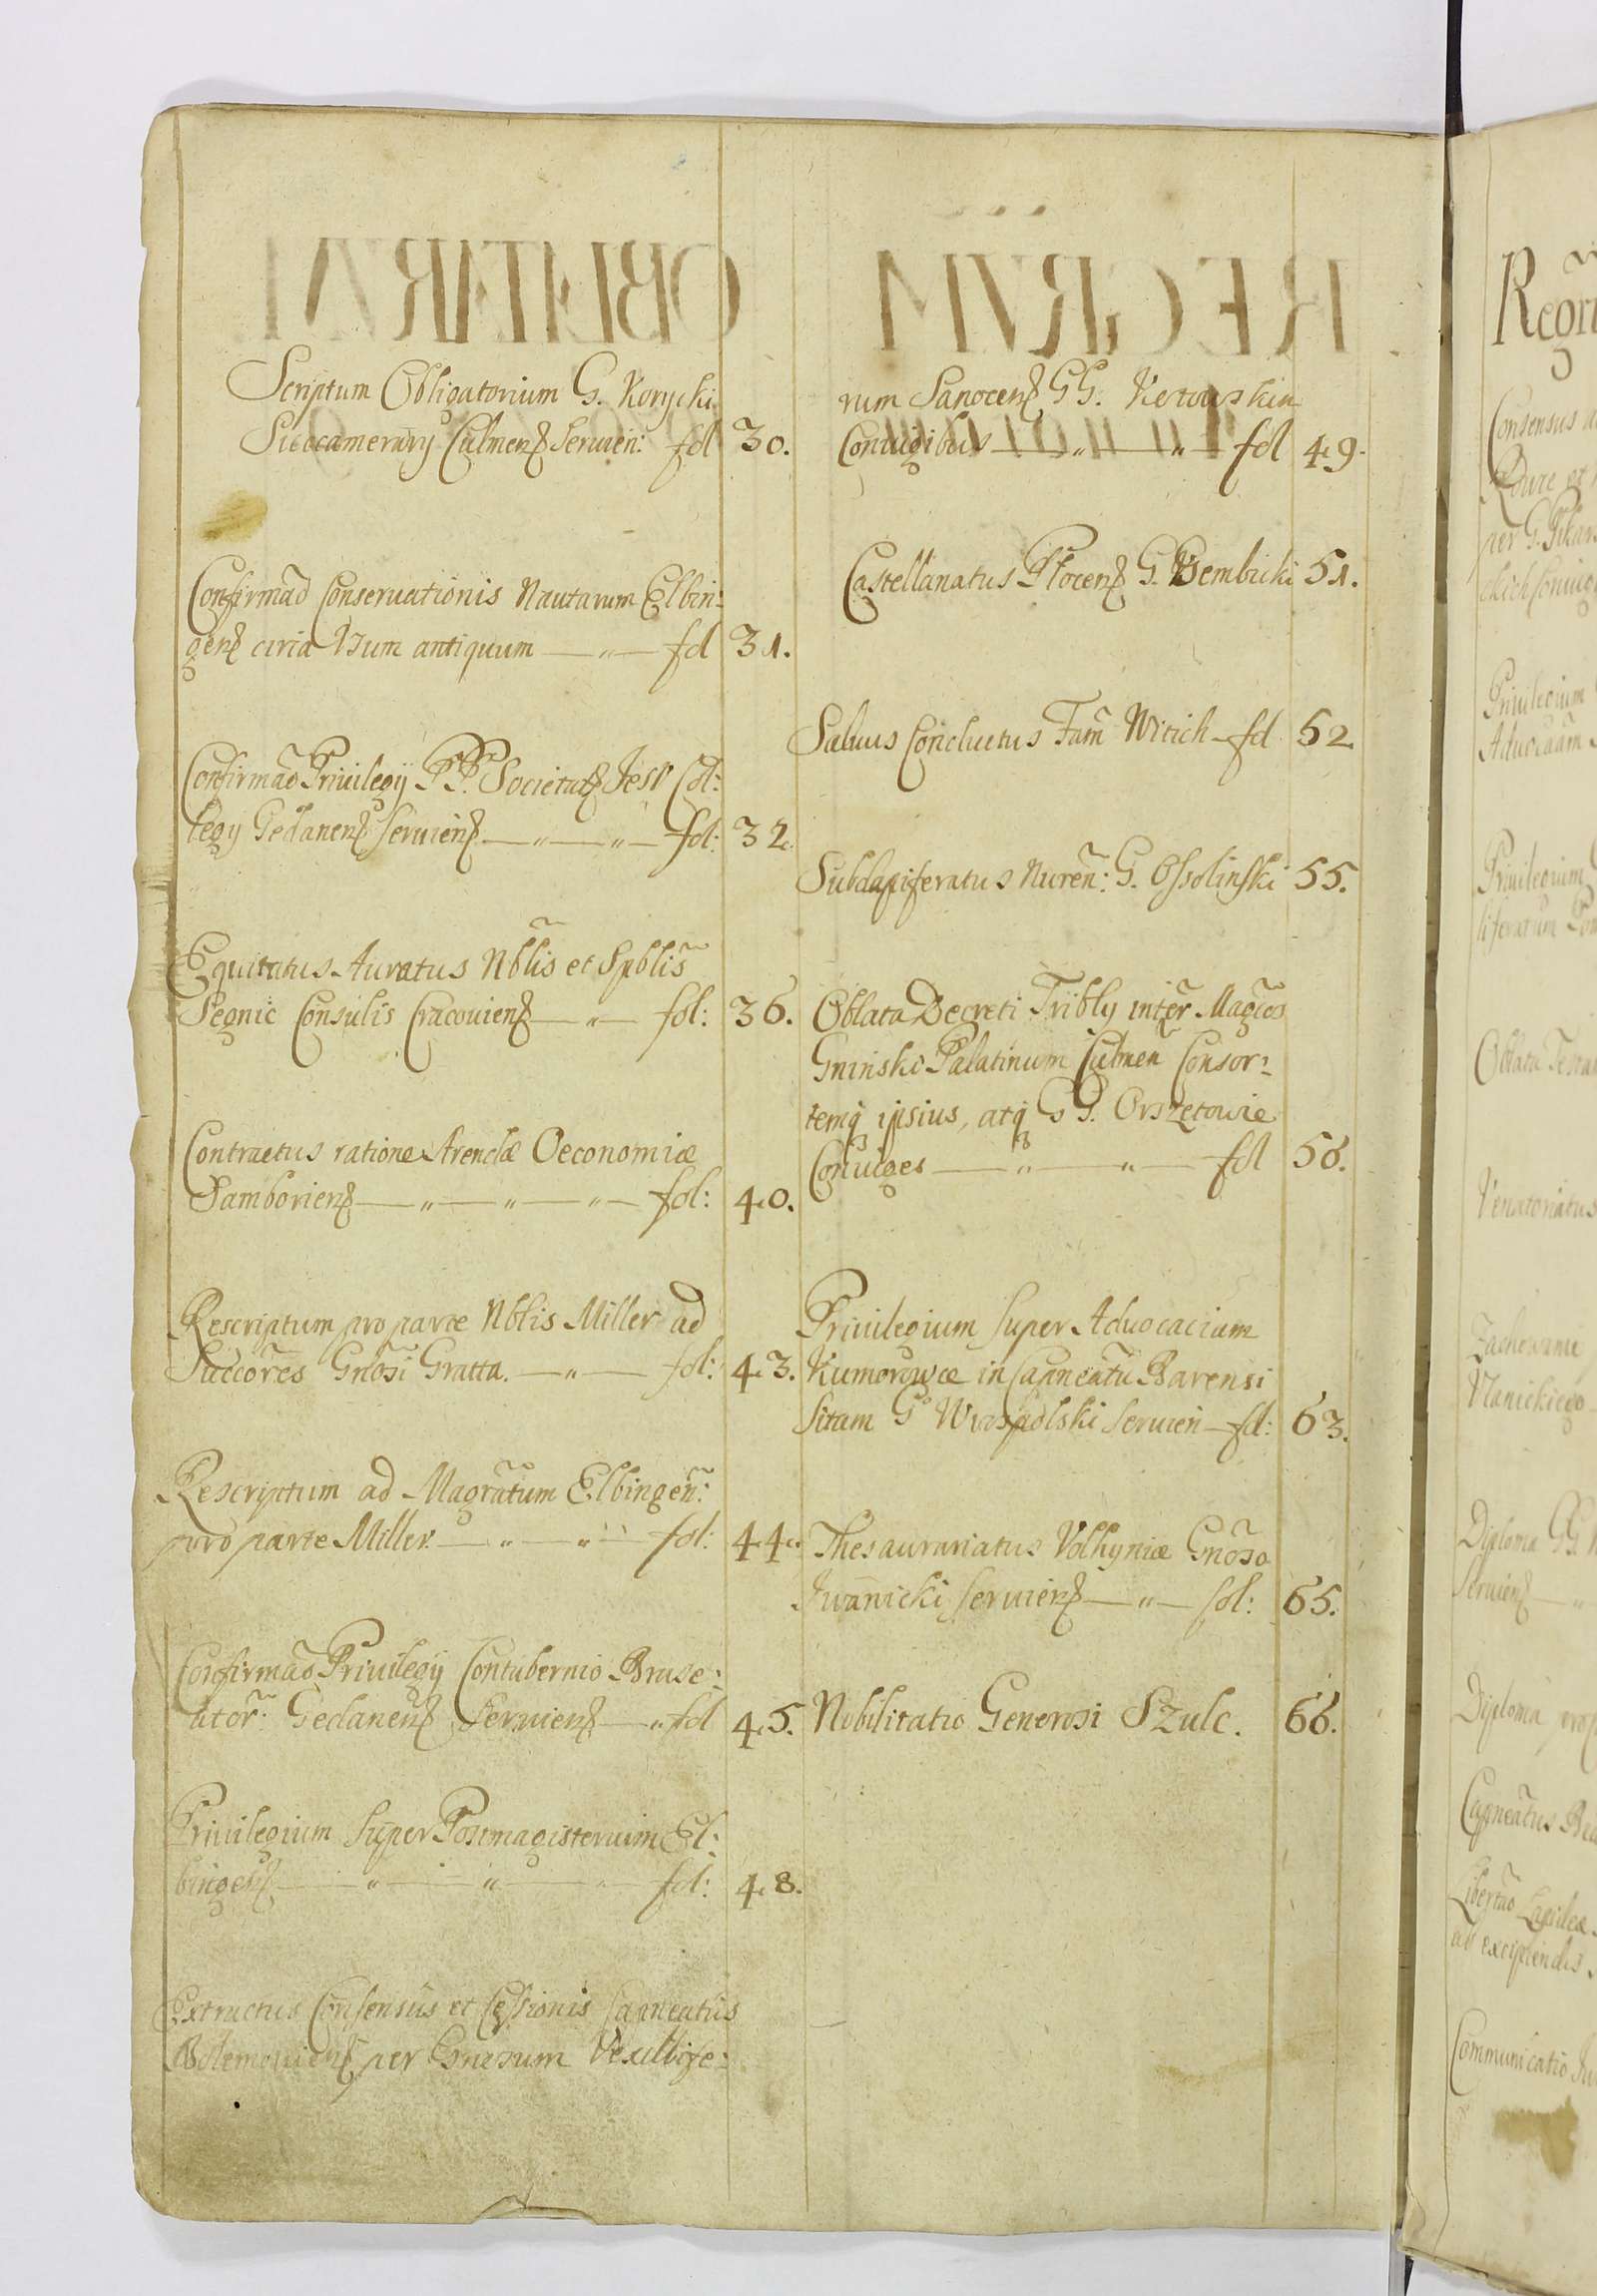 Scriptum Obligatorium G. Korycki
Succamerary Culmens Seruien: fol 30.
Confirmao Conseruationis Nautarum Elbin:
gens circa Vsum antiquum fol 31.
Confirmao Priuilegij P.P. Societatis Jesv Col:
legy Gedanens seruiens fol: 32.
Equitatus Auratus Nblis et Spblis
Consulis Cracouiens fol: 36.
Contractus ratione Arendæ Oeconomiæ
Samboriens fol: 40.
Rescriptum pro parte Nblis Miller ad
Succores Gnosi Gratta. fol: 43.
Rescriptum ad Magratum Elbingen:
pro parte Miller. fol: 44.
Confirmao Priuilegij Contubernio Braxe:
ator: Gedanens Seruiens fol 45.
Priuilegium Super Postmagisterium El:
bingens fol: 48.
Extractus Consensus et Cessionis Capneatus
per Gnerum Vexillife:
rum Sanocens GG.
Coniugibus fol 49.
Castellanatus Plocens G. Wembicki 51.
Saluus Conductus Fam Witich fol 52
Subdapiferatus Nuren: G. Ossolinski 55.
Oblata Decreti Tribly inter Magcos
Gninski Palatinum Culmen Consor:
temq ipsius, atq GG. Orszetowie
Coniuges fol 56.
Priuilegium super Aduocaciam
Kumorowce in Capneatu Barensi
sitam Go seruien fol: 63.
Thesaurariatus Volhyniæ Gnoso
Iwanicki seruiens fol: 65.
Nobilitatio Generosi Szulc. 66.
Regri
Consensus
per G.
Priuilegium
Priuilegium
Oblata
Venatoriatus
Diploma GG.
Seruiens
Diploma
Capneatus
ad excipiendis
Communicatio